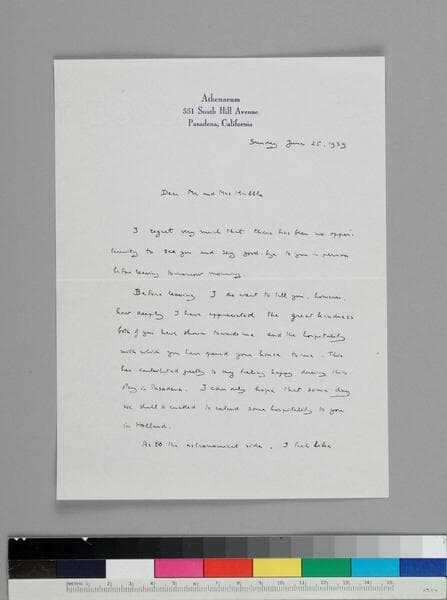 Athenaeum
551 South Hill Avenue
Pasadena, California
Sunday June 25, 1939
Dear Mr and Mrs. Hubble
I regret very much that there has been no oppor-
tunity to see you and say good-bye to you in person
before leaving tomorrow morning.
Before leaving I do want to tell you, however,
how deeply I have appreciated the great kindness
both of you have shown towards me and the hospitality
with which you have opened your house to me. This
has contributed greatly to my feeling happy during this
stay in Pasadena. I can only hope that some day
we shall be enabled to extend some hospitality to you
in Holland.
As to the astronomical side, I feel like
1 2 3 4 5 6 7 8 9 10 11 12 13 14 15